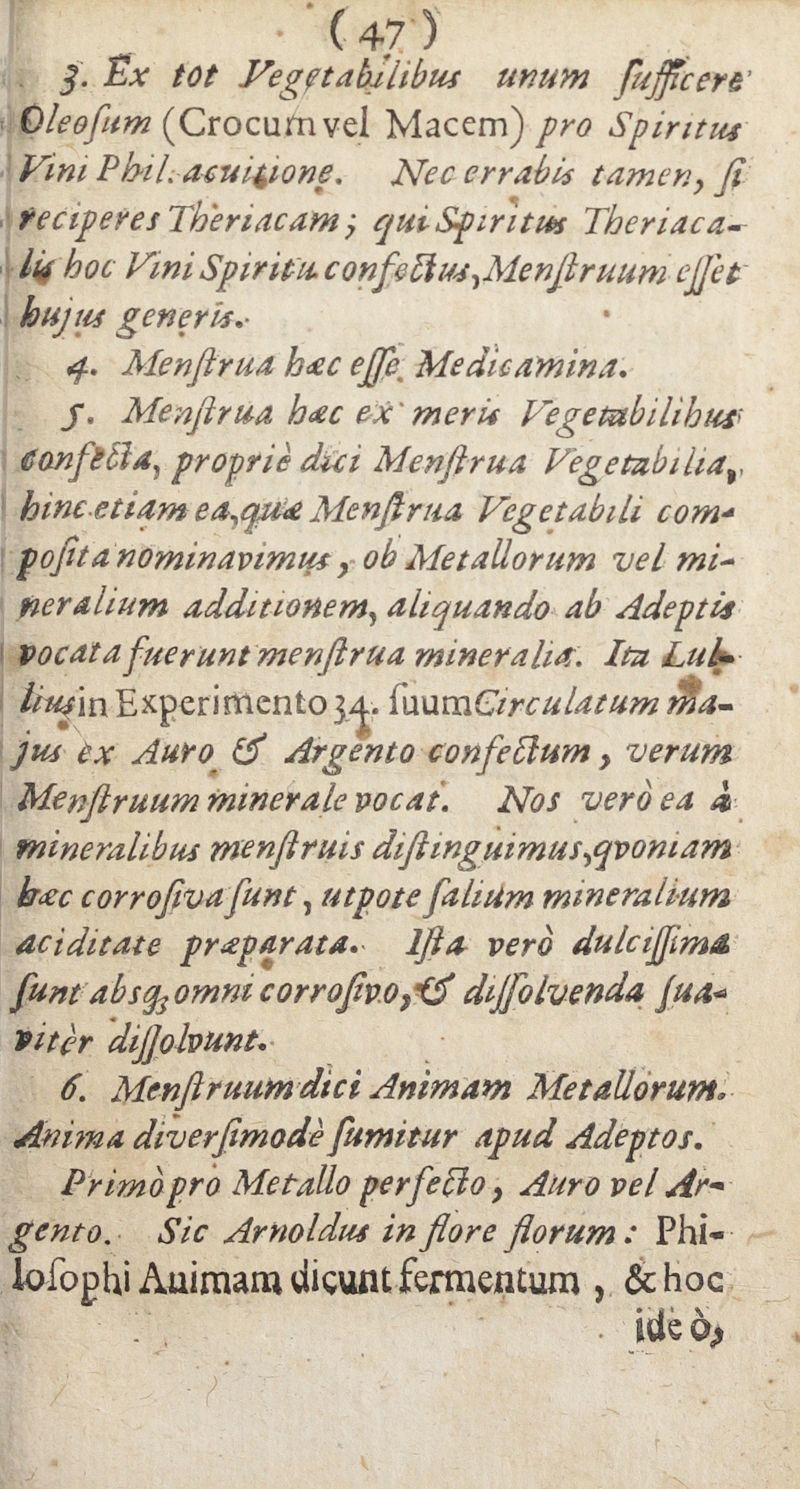 (47)
3. Ex tot Vegetabilibus unum ſufficere
Oleoſum (Crocum vel Macem) pro Spiritus
Vini Phil. acuitione. Nec errabis tamen, ſi
reciperes Theriacam; qui Spiritus Theriaca-
lis hoc Vini Spiritu confectus, Menſtruum eſſet
hujus generis.
4. Menſtrua hæc eſſe Medicamina.
5. Menſtrua hæc ex meris Vegetabilibus
confecta, propriè dici Menſtrua Vegetabilia,
hinc etiam ea, quæ Menſtrua Vegetabili com-
poſita nominavimus, ob Metallorum vel mi-
neralium additionem, aliquando ab Adeptis
vocata fuerunt menſtrua mineralia. Ita Lul-
lius in Experimento 34. ſuum Circulatum ma-
jus ex Auro & Argento confectum, verum
Menſtruum minerale vocat. Nos verò ea à
mineralibus menſtruis diſtinguimus, qvoniam
hæc corroſiva ſunt, utpote ſalium mineralium
aciditate præparata. Iſta verò dulciſſima
ſunt absq; omni corroſivo, & diſſolvenda ſua-
vitèr diſſolvunt.
6. Menſtruum dici Animam Metallorum.
Anima diverſimodè ſumitur apud Adeptos.
Primò pro Metallo perfecto, Auro vel Ar-
gento. Sic Arnoldus in flore florum: Phi-
loſophi Auimam dicunt fermentum, & hoc
ideò,